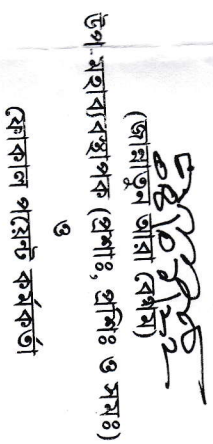 (জান্নাতুন আরা বেগম)
উপ-মহাব্যবস্থাপক (প্রশাঃ, প্রশিঃ ও সমঃ)
ও
ফোকাল পয়েন্ট কর্মকর্তা